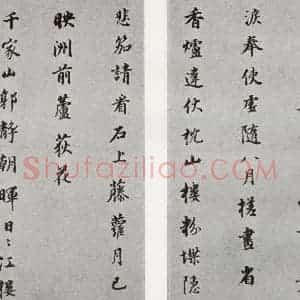 淚奉使虛隨八月槎畫省
香爐違伏枕山樓粉堞隱
悲笳請看石上藤蘿月已
映洲前蘆荻花
千家山郭靜朝暉日〻江樓
Shufaziliao.com